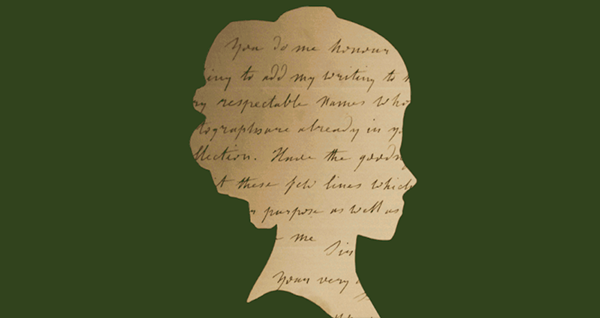 You do me honour
ing to add my writing to
respectable Names who
tographs are already in
llection. Have the goodn
it these few lines which
purpose as well as
me
Sir
Your very